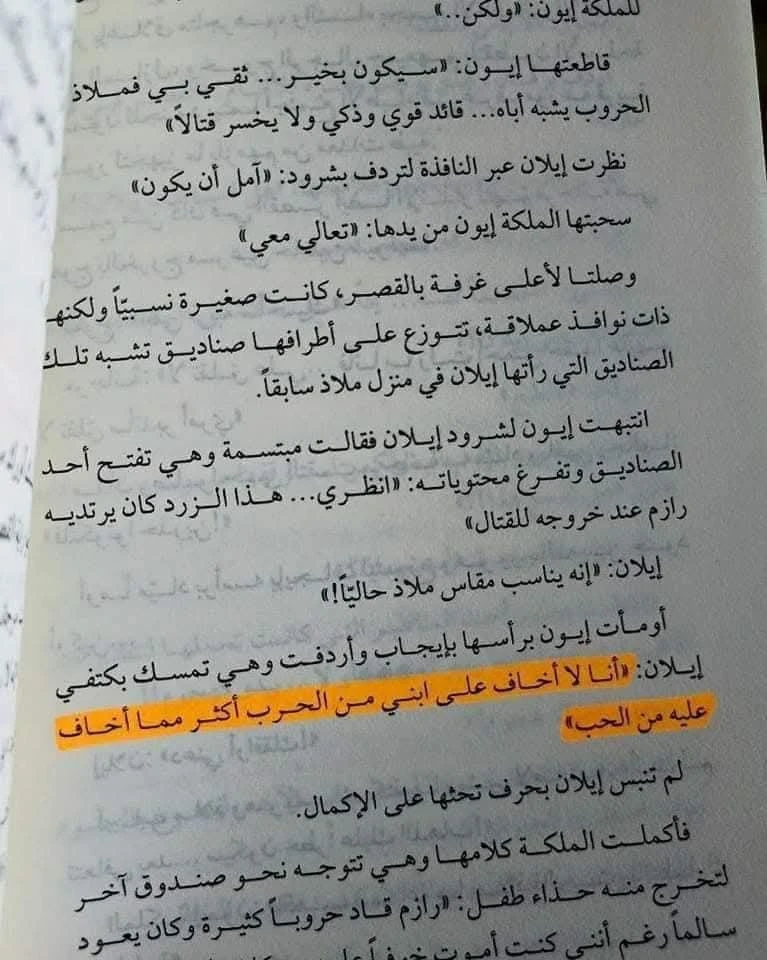 للملكة إيون: «ولكن..»
قاطعتها إيون: «سيكون بخير... ثقي بي فملاذ
الحروب يشبه أباه... قائد قوي وذكي ولا يخسر قتالاً»
نظرت إيلان عبر النافذة لتردف بشرود: «آمل أن يكون»
سحبتها الملكة إيون من يدها: «تعالي معي»
وصلتا لأعلى غرفة بالقصر، كانت صغيرة نسبيّاً ولكنها
ذات نوافذ عملاقة، تتوزع على أطرافها صناديق تشبه تلك
الصناديق التي رأتها إيلان في منزل ملاذ سابقاً.
انتبهت إيون لشرود إيلان فقالت مبتسمة وهي تفتح أحد
الصناديق وتفرغ محتوياته: «انظري... هذا الزرد كان يرتديه
رازم عند خروجه للقتال»
إيلان: «إنه يناسب مقاس ملاذ حاليّاً!»
أومأت إيون برأسها بإيجاب وأردفت وهي تمسك بكتفي
إيلان: «أنا لا أخاف على ابني من الحرب أكثر مما أخاف
عليه من الحب»
لم تنبس إيلان بحرف تحثها على الإكمال.
فأكملت الملكة كلامها وهي تتوجه نحو صندوق آخر
لتخرج منه حذاء طفل: «رازم قاد حروباً كثيرة وكان يعود
سالماً رغم أنني كنت أموت خوفاً